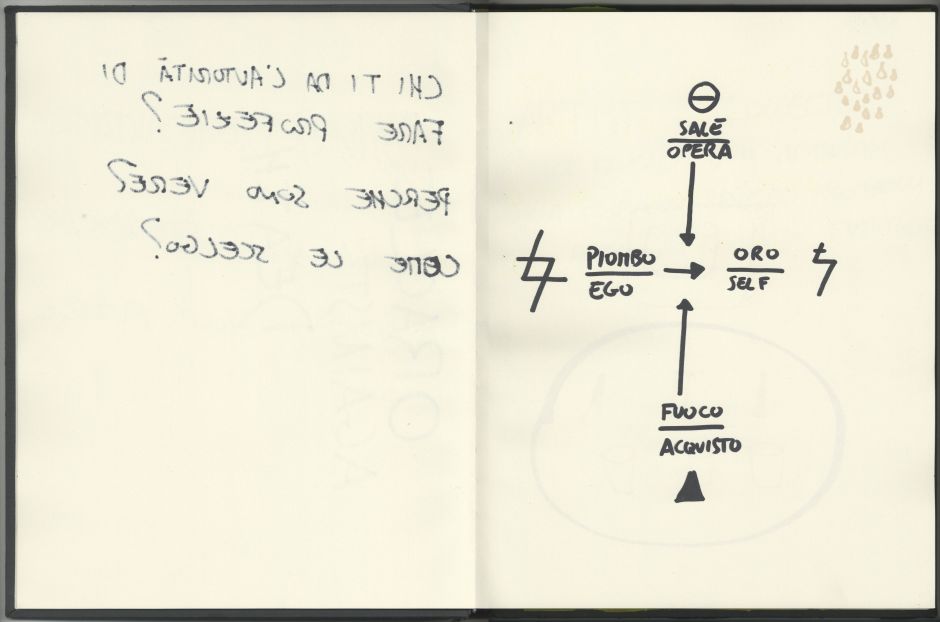 CHI TI DA L'AUTORITÀ DI
FARE PROFEZIE?
PERCHE SONO VERE?
COME LE SCELGO?
SALE
OPERA
PIOMBO
EGO
ORO
SELF
FUOCO
ACQUISTO